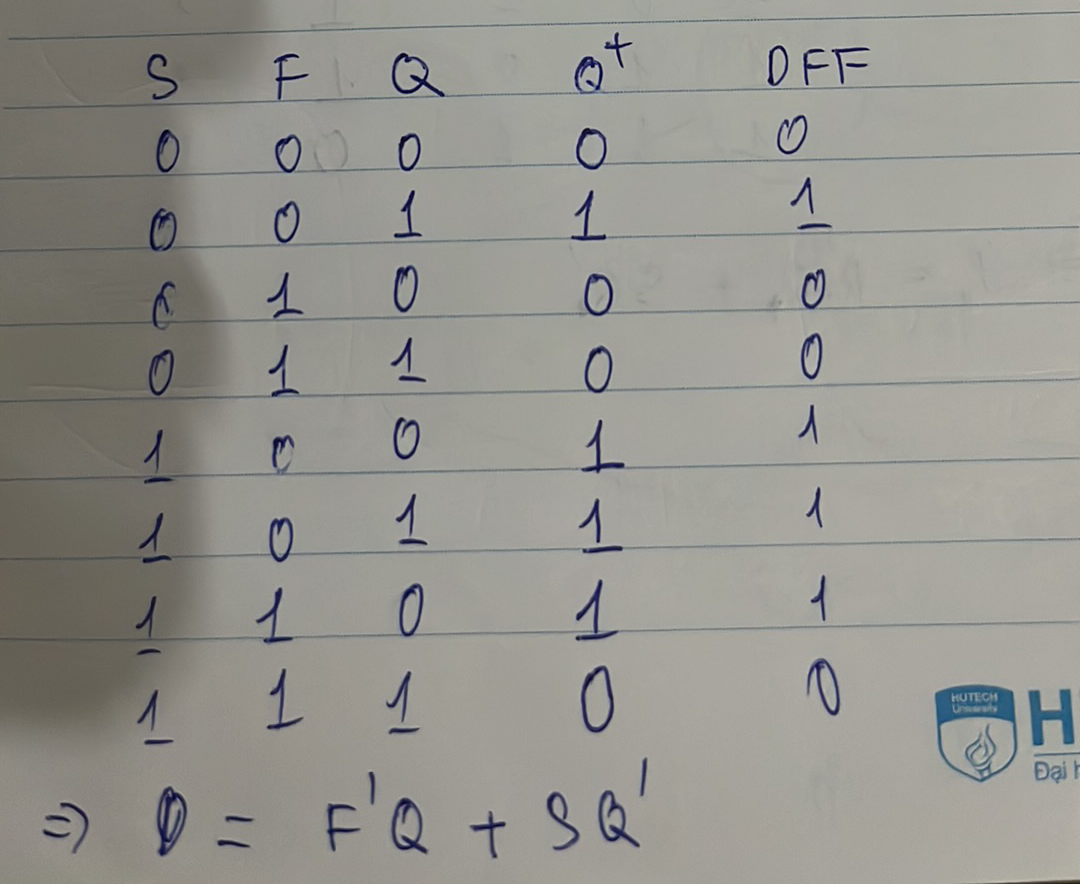 S F Q Q⁺ DFF
0 0 0 0 0
0 0 1 1 1
0 1 0 0 0
0 1 1 0 0
1 0 0 1 1
1 0 1 1 1
1 1 0 1 1
1 1 1 0 0
HUTECH
University
H
Đại h
⇒ D = F'Q + SQ'